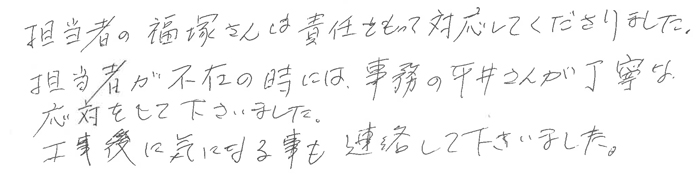 担当者の福塚さんは責任をもって対応してくださりました。
担当者が不在の時には、事務の平井さんが丁寧な
応対をして下さいました。
工事後に気になる事も連絡して下さいました。